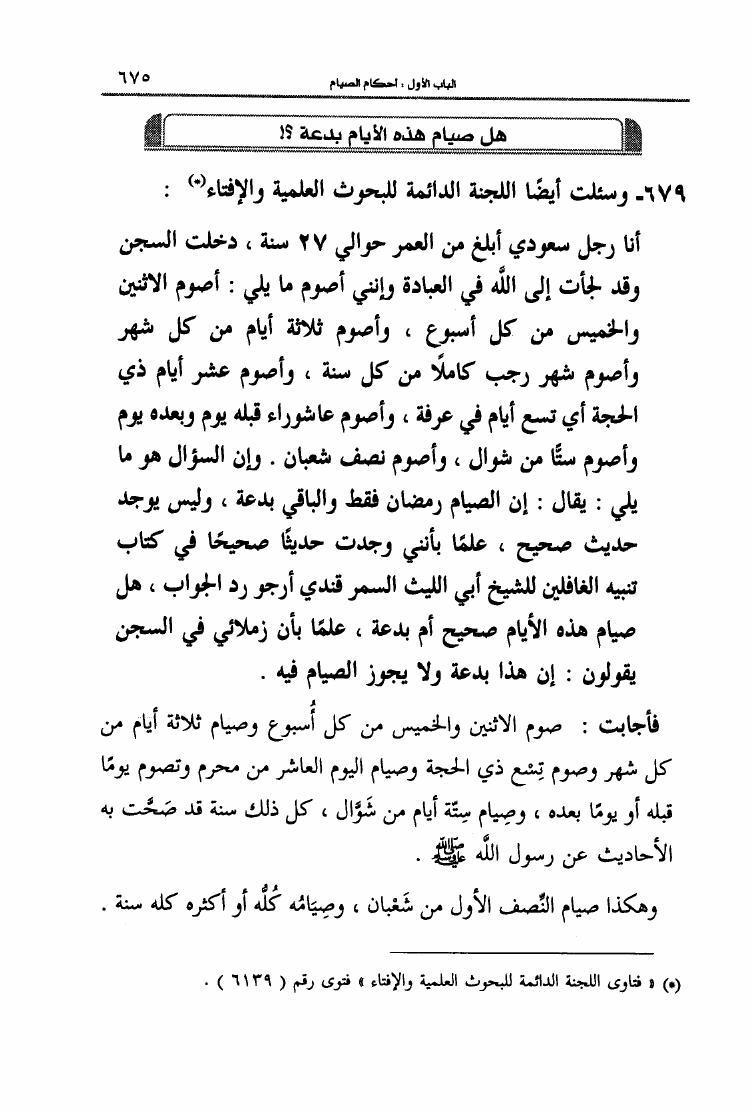 الباب الأول : أحكام الصيام
٦٧٥
هل صيام هذه الأيام بدعة ؟!
٦٧٩ـ وسئلت أيضًا اللجنة الدائمة للبحوث العلمية والإفتاء(*) :
أنا رجل سعودي أبلغ من العمر حوالي ٢٧ سنة ، دخلت السجن
وقد لجأت إلى اللَّه في العبادة وإنني أصوم ما يلي : أصوم الاثنين
والخميس من كل أسبوع ، وأصوم ثلاثة أيام من كل شهر
وأصوم شهر رجب كاملًا من كل سنة ، وأصوم عشر أيام ذي
الحجة أي تسع أيام في عرفة ، وأصوم عاشوراء قبله يوم وبعده يوم
وأصوم ستًّا من شوال ، وأصوم نصف شعبان . وإن السؤال هو ما
يلي : يقال : إن الصيام رمضان فقط والباقي بدعة ، وليس يوجد
حديث صحيح ، علمًا بأنني وجدت حديثًا صحيحًا في كتاب
تنبيه الغافلين للشيخ أبي الليث السمر قندي أرجو رد الجواب ، هل
صيام هذه الأيام صحيح أم بدعة ، علمًا بأن زملائي في السجن
يقولون : إن هذا بدعة ولا يجوز الصيام فيه .
فأجابت : صوم الاثنين والخميس من كل أُسبوع وصيام ثلاثة أيام من
كل شهر وصوم تِسْع ذي الحجة وصيام اليوم العاشر من محرم وتصوم يومًا
قبله أو يومًا بعده ، وصِيام سِتّة أيام من شَوَّال ، كل ذلك سنة قد صَحَّت به
الأحاديث عن رسول اللَّه ﷺ .
وهكذا صيام النِّصف الأول من شَعْبان ، وصِيَامُه كُلُّه أو أكثره كله سنة .
(*) « فتاوى اللجنة الدائمة للبحوث العلمية والإفتاء » فتوى رقم ( ٦١٣٩ ) .